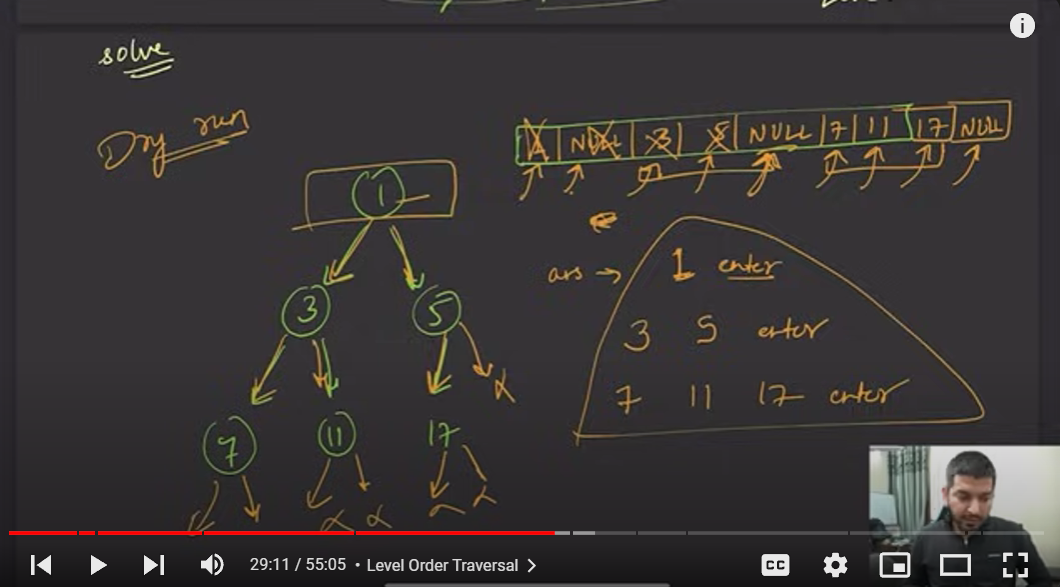 solve
Dry run
1 NULL 3 5 NULL 7 11 17 NULL
1
ans → 1 enter
3 5
3 5 enter
7 11 17 enter
7 11 17
29:11 / 55:05 • Level Order Traversal
CC